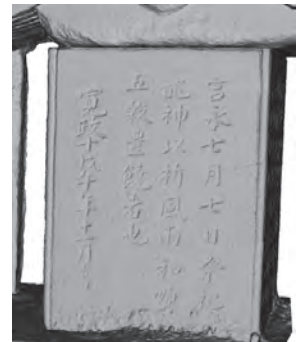 言永七月七日祭祀
龍神以祈風雨和順
五穀豊饒者也
寛政十戊午年十一月